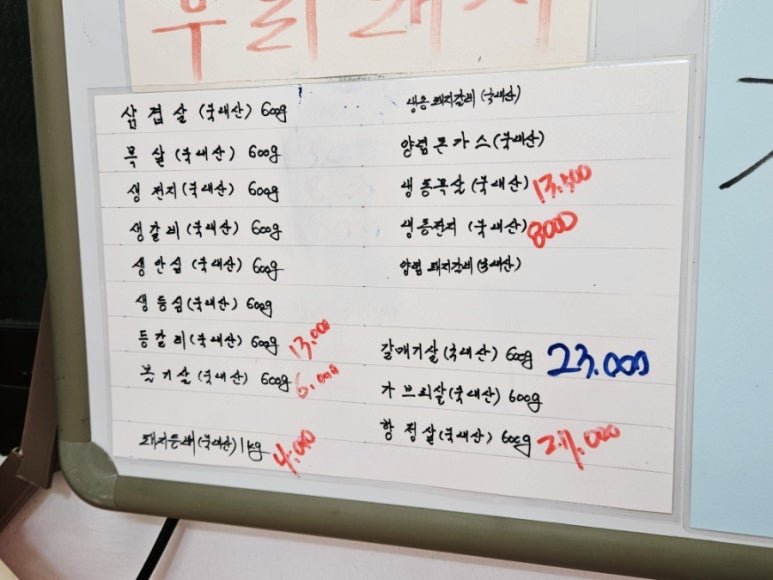 우리돼지
삼겹살 (국내산) 600g
목살 (국내산) 600g
생전지 (국내산) 600g
생갈비 (국내산) 600g
생안심 (국내산) 600g
생등심 (국내산) 600g
등갈비 (국내산) 600g 13,000
볶기살 (국내산) 600g 6.000
(국내산) 1kg 4.000
냉동돼지갈비 (국내산)
양념돈가스 (국내산)
냉동목살 (국내산) 13.500
냉동전지 (국내산) 8000
양념돼지갈비 (국내산)
갈매기살 (국내산) 600g 23.000
가브리살 (국내산) 600g
항정살 (국내산) 600g